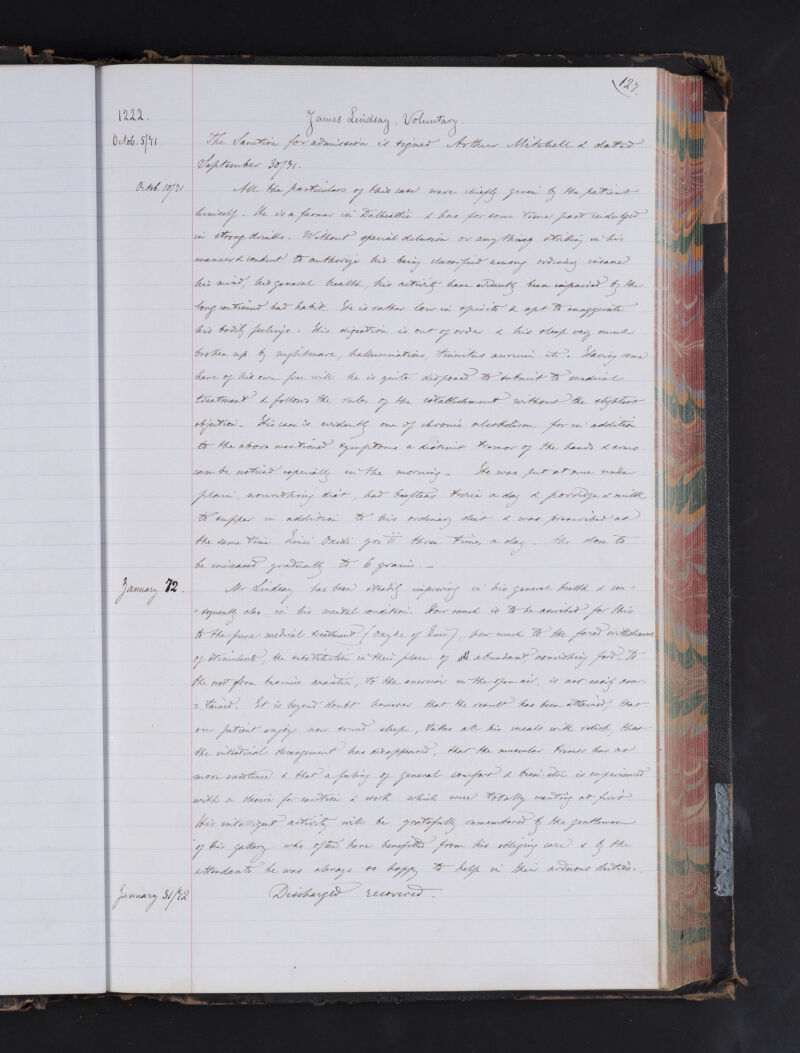 127.
1222.
James Lindsay, Voluntary.
Octob. 5/71
The Sanction for admission is signed Arthur Mitchell & dated
September 30/71.
Octob. 10/71
All the particulars of this case were chiefly given by the patient
himself. He is a farmer in Dalbeattie & has for some time past indulged
in strong drinks. Without special delusion or anything striking in his
manner & conduct to authorize his being classified among ordinary insane
his mind, his general health, his activity have evidently been impaired by the
long continued bad habit. He is rather low in spirits & apt to exaggerate
his bodily feelings. His digestion is out of order & his sleep very much
broken up by nightmare, hallucinations, tinnitus aurium etc. Having come
here of his own free will he is quite disposed to submit to medical
treatment & follows the rules of the establishment without the slightest
objection. His case is evidently one of chronic alcoholism for in addition
to the above mentioned symptoms a distinct tremor of the hands & arms
can be noticed especially in the morning. He was put at once under
plain, nourishing diet, had beeftea twice a day & porridge & milk
to supper in addition to his ordinary diet & was prescribed at
the same time Zinci Oxidi gr ii three times a day. the dose to
be increased gradually to 6 grains.
January 72.
Mr Lindsay has been steadily improving in his general health & con-
=sequently also in his mental condition. How much is to be ascribed for this
to the pure medical treatment (oxyde of Zinc), how much to the forced withdrawal
of stimulants, the substitution in their place of abundant, nourishing food. to
the rest from business anxieties, to the exercise in the open air, is not easily ascer-
=tained. It is beyond doubt however that the result has been attained, that
our patient enjoys now sound sleep, takes all his meals with relish, that
the intestinal derangement has disappeared, that the muscular tremor has no
more existence & that a feeling of general comfort & bien-être is experienced
with a desire for exertion & work which were totally wanting at first.
His intelligent activity will be gratefully remembered by the gentlemen
of his gallery who often have benefitted from his obliging care & by the
attendants he was always so happy to help in their arduous duties.
January 31/72
Discharged recovered.